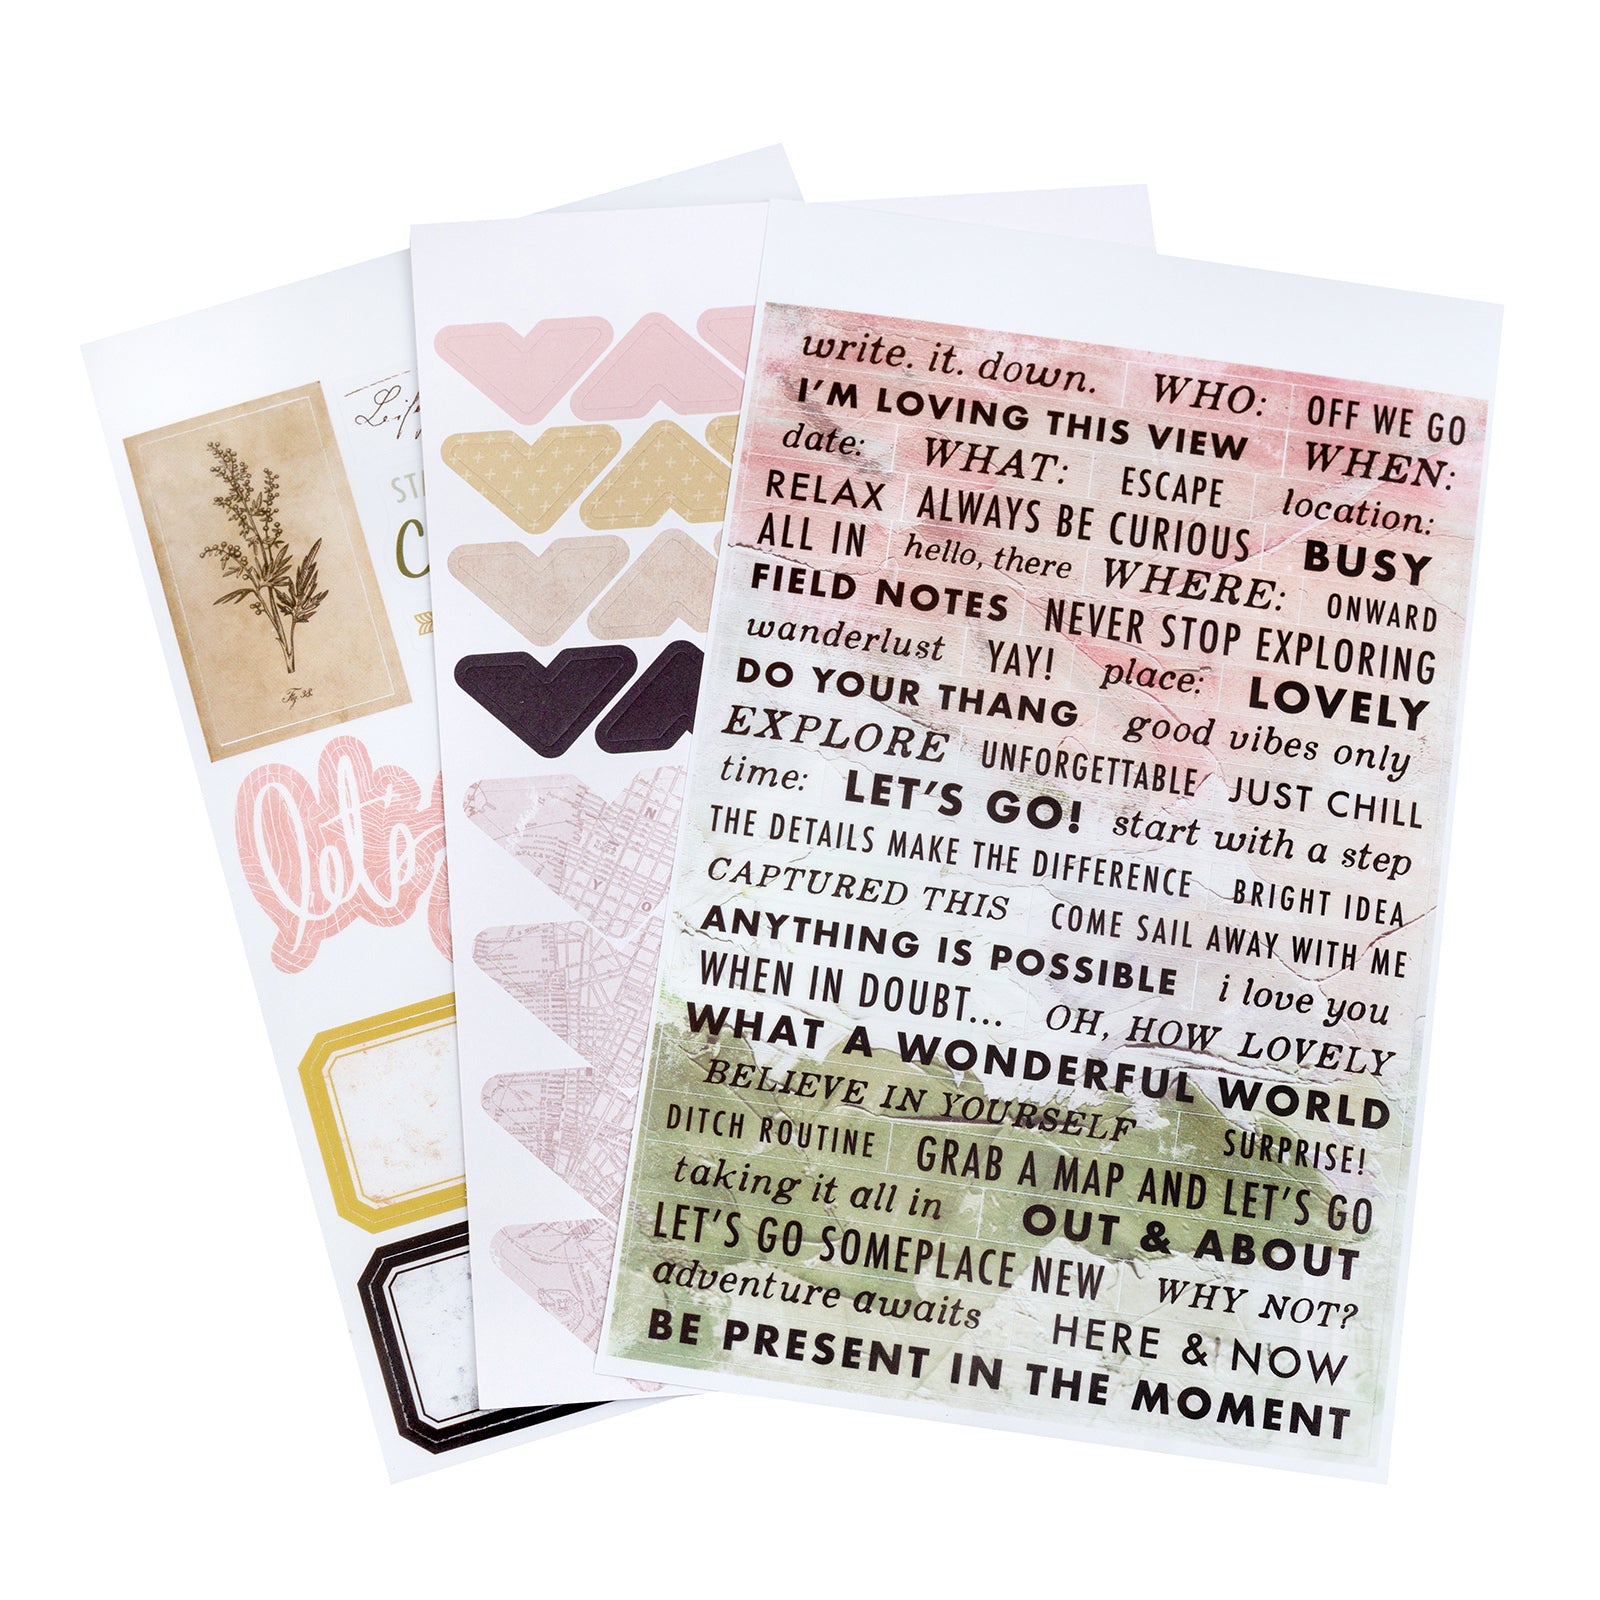 write. it. down. WHO: OFF WE GO
I'M LOVING THIS VIEW WHEN:
date: WHAT: ESCAPE location:
RELAX ALWAYS BE CURIOUS
ALL IN hello, there WHERE: BUSY
FIELD NOTES NEVER STOP EXPLORING ONWARD
wanderlust YAY! place: LOVELY
DO YOUR THANG good vibes only
EXPLORE UNFORGETTABLE JUST CHILL
time: LET'S GO! start with a step
THE DETAILS MAKE THE DIFFERENCE BRIGHT IDEA
CAPTURED THIS COME SAIL AWAY WITH ME
ANYTHING IS POSSIBLE i love you
WHEN IN DOUBT... OH, HOW LOVELY
WHAT A WONDERFUL WORLD
BELIEVE IN YOURSELF SURPRISE!
DITCH ROUTINE GRAB A MAP AND LET'S GO
taking it all in OUT & ABOUT
LET'S GO SOMEPLACE NEW WHY NOT?
adventure awaits HERE & NOW
BE PRESENT IN THE MOMENT
Fig. 38.
let's